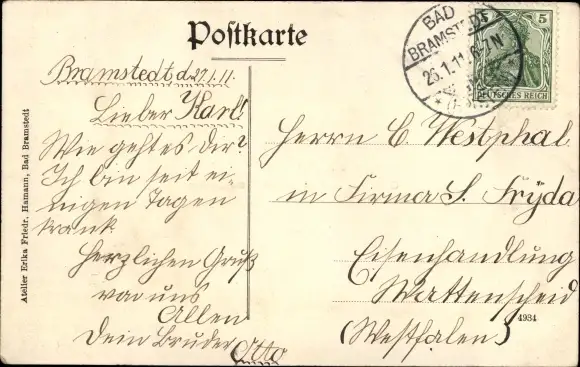 Postkarte
BAD
BRAMSTEDT
26.1.11. 6-7 N
5
DEUTSCHES REICH
Bramstedt d. 27.1.11.
Lieber Karl!
Wie geht es Dir?
Ich bin seit ei-
nigen Tagen
krank
Herzlichen Gruß
von uns
Allen
Dein Bruder Otto
Herrn C. Westphal
in Firma S. Fryda
Eisenhandlung
Wattenscheid
(Westfalen)
4934
Atelier Erika Friedr. Hamann, Bad Bramstedt